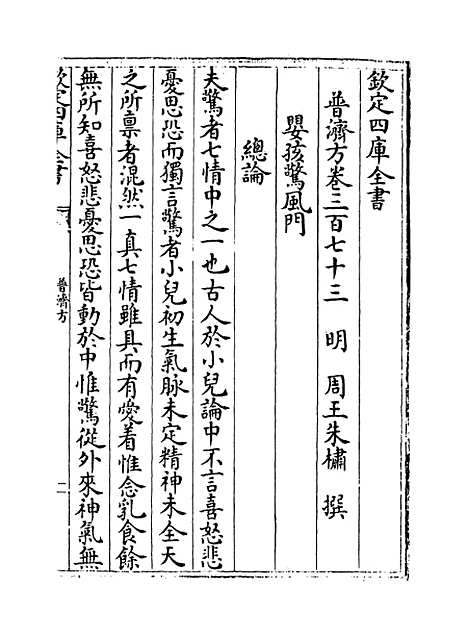 欽定四庫全書
普濟方卷三百七十三　明　周王朱橚　撰
嬰孩驚風門
總論
夫驚者七情中之一也古人於小兒論中不言喜怒悲
憂思恐而獨言驚者小兒初生氣脉未定精神未全天
之所禀者混然一真七情雖具而有愛着惟念乳食餘
無所知喜怒悲憂思恐皆動於中惟驚從外來神氣無
欽定四庫全書
普濟方